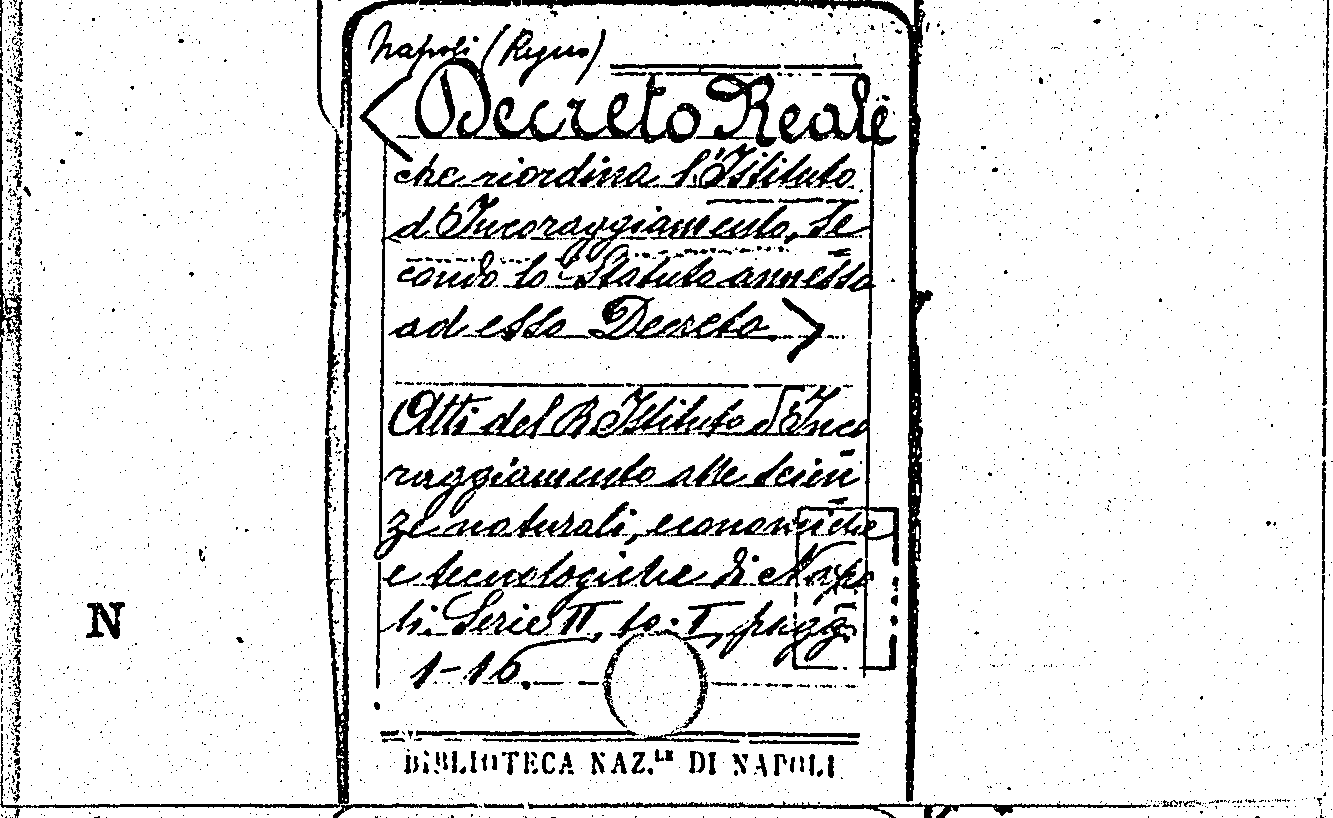 Napoli (Regno)
< Decreto Reale
che riordina l'Istituto
d'Incoraggiamento, se
condo lo Statuto annesso
ad esso Decreto >
Atti del R. Istituto d'Inco
raggiamento alle scien
ze naturali, economiche
e tecnologiche di Napo
li. Serie II, to. I, pagg.
1-16.
N
BIBLIOTECA NAZ.LE DI NAPOLI